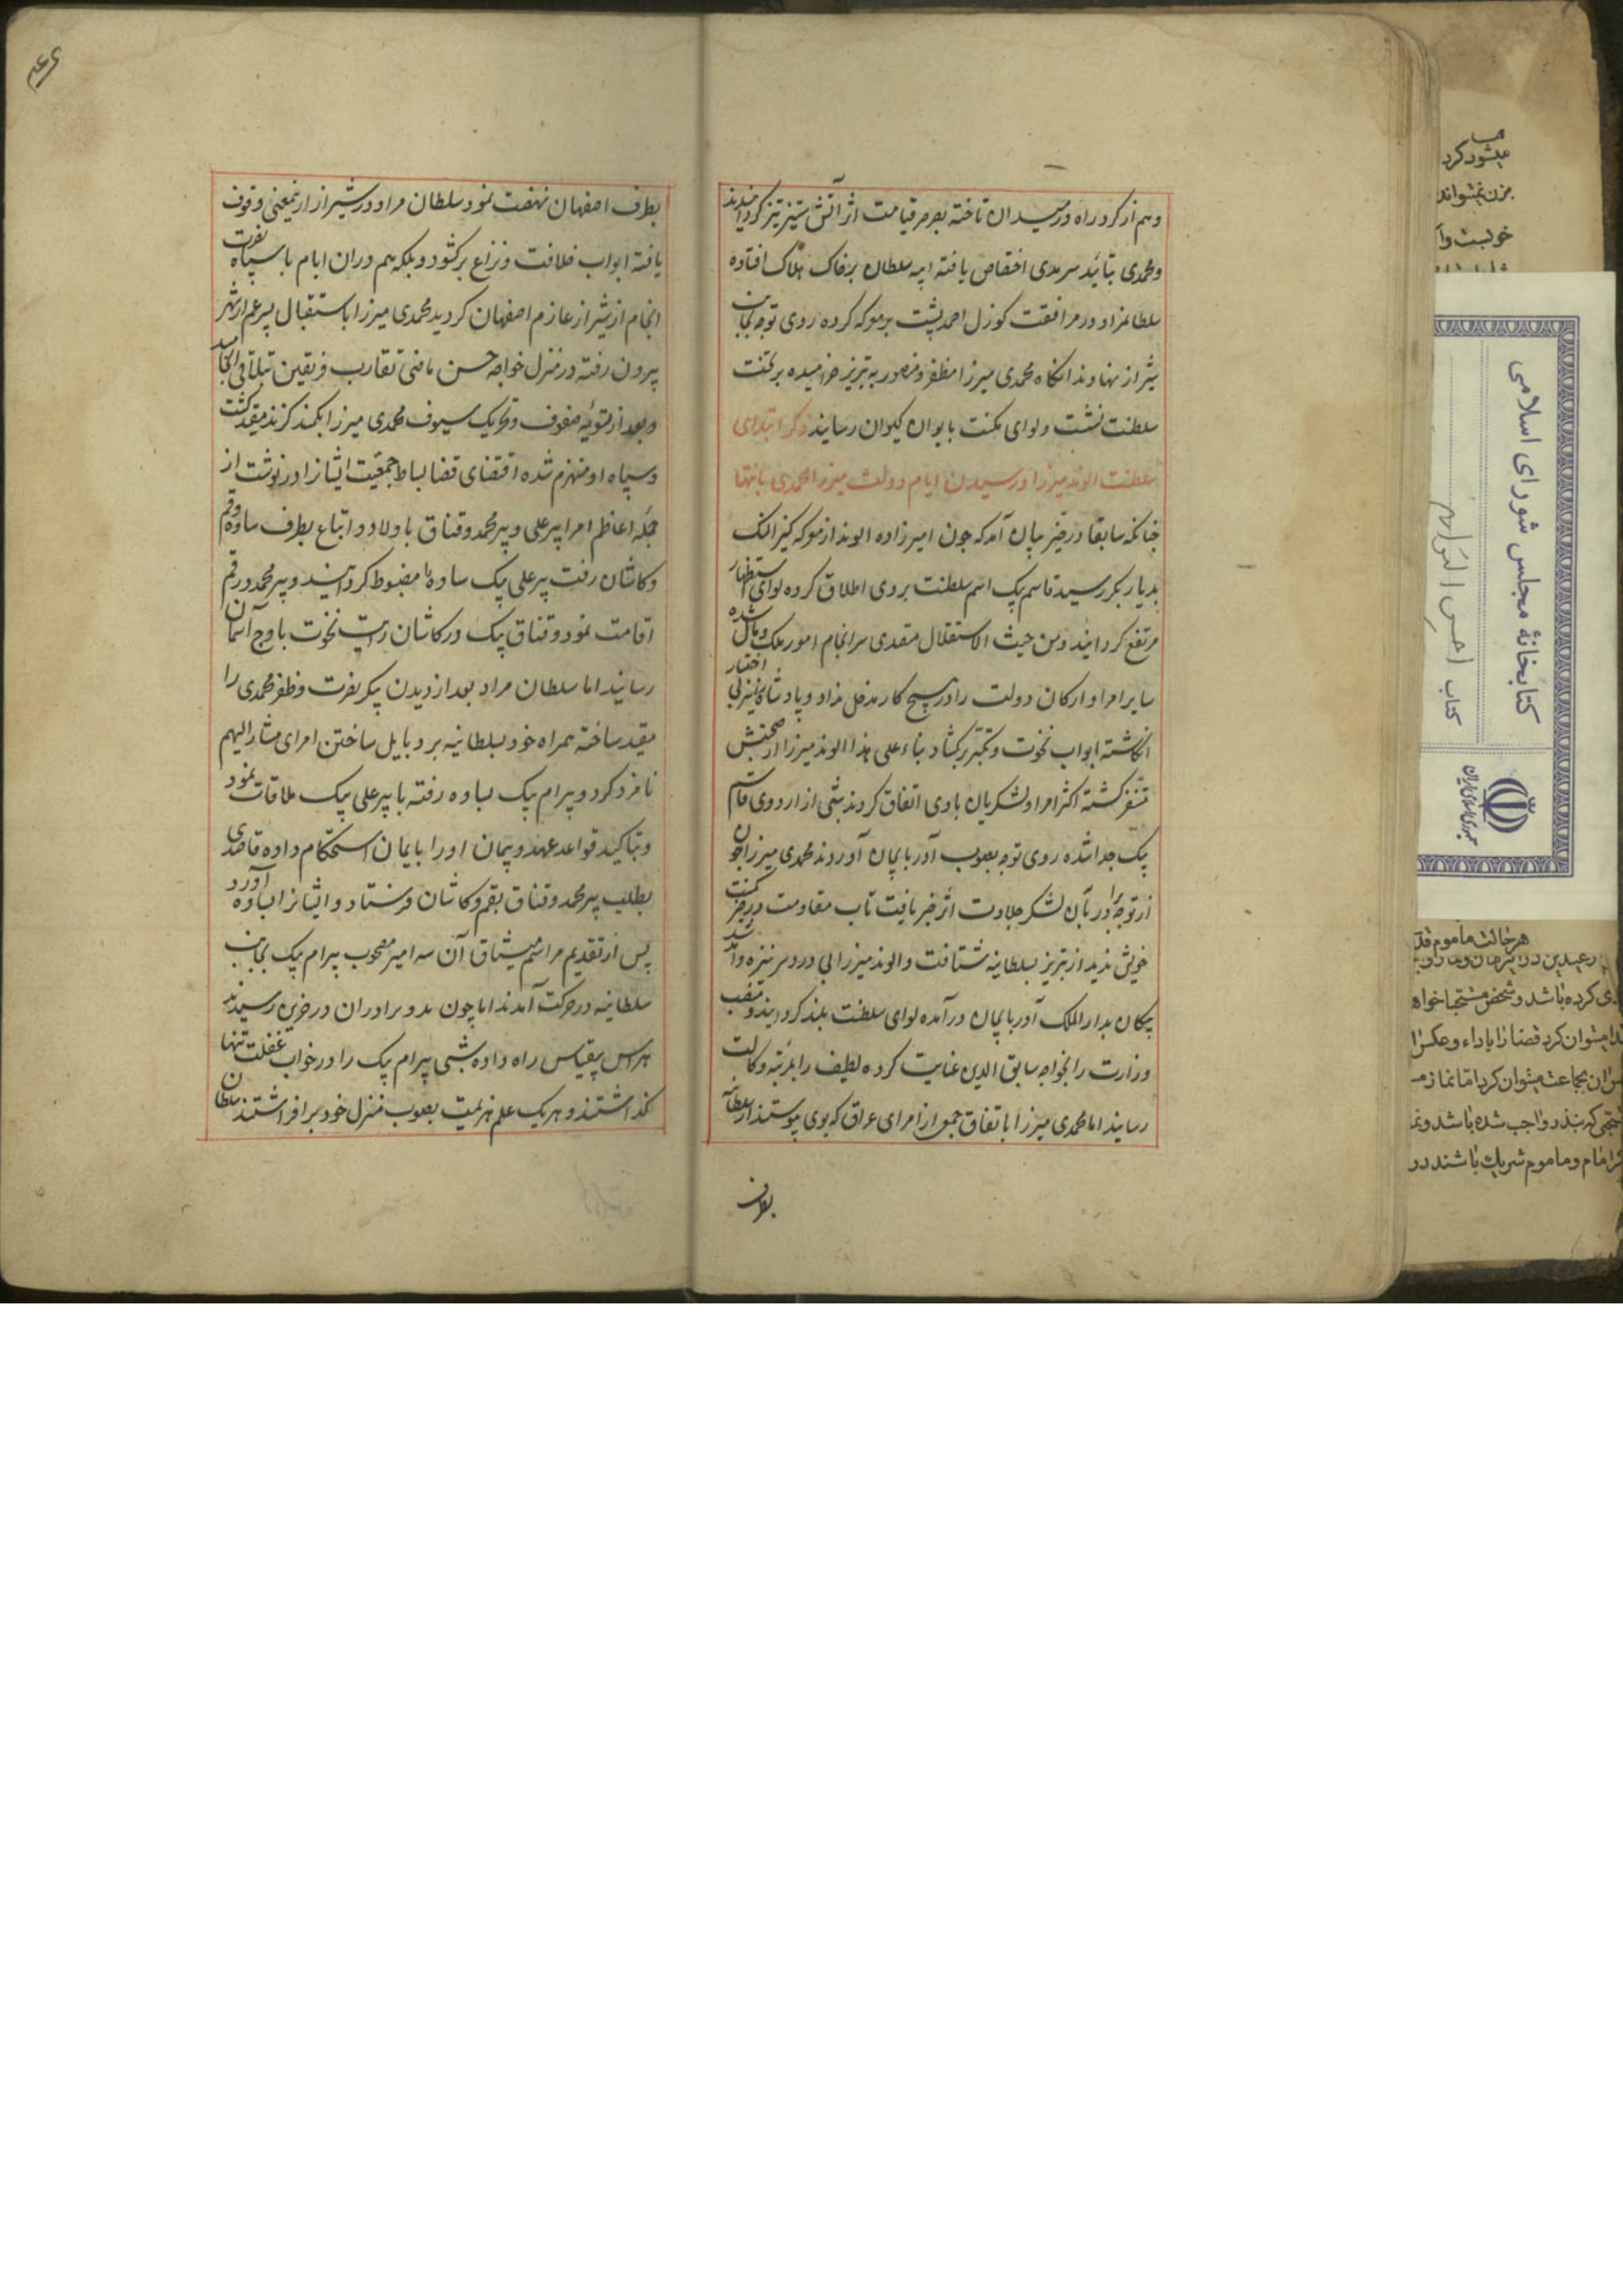 وهم از کرد راه در میدان تاخته بصرصر قیامت اثر آتش ستیز تیز گردانیدند
ومحمدی بتائید سرمدی اختصاص یافته ایبه سلطان بر خاک هلاک افتاده
سلطانمراد در مرافقت کوزل احمد پشت بر معرکه کرده روی توجه بجانب
شیراز نهادند انکاه محمدی میرزا مظفر و منصور به تبریز خرامیده بر تخت
سلطنت نشست ولوای مکنت بایوان کیوان رسانید ذکر ابتدای
سلطنت الوند میرزا ورسیدن ایام دولت میرزا محمدی بانتها
چنانکه سابقا در حیز بیان آمد که چون امیرزاده الوند از معرکه کیز النک
بدیار بکر رسید قاسم بیک اسم سلطنت بروی اطلاق کرده لوای استظهار
مرتفع کردانید ومن حیث الاستقلال متصدی سرانجام امور ملک ومال شده
سایر امرا وارکان دولت را در هیچ کار مدخل نداد و پادشاه را نیز بی اختیار
انکاشته ابواب نخوت وتکبر برکشاد بناء علی هذا الوند میرزا از صحبتش
متنفر کشته اکثر امرا ولشکریان باوی اتفاق کردند شبی از اردوی قاسم
بیک جدا شده روی توجه بصوب آذربایجان آوردند محمدی میرزا چون
از توجه برادر بآن لشکر جلادت اثر خبر یافت تاب مقاومت در حیز مکنت
خویش ندید از تبریز بسلطانیه شتافت والوند میرزا بی دردسر نیزه وآمد شد
پیکان بدار الملک آذربایجان درآمده لوای سلطنت بلند کردانید ومنصب
وزارت را بخواجه سابق الدین عنایت کرده لطیف را بمرتبه وکالت
رسانید اما محمدی میرزا باتفاق جمعی از امرای عراق که بوی پیوستند از سلطانیه
بطرف
بطرف اصفهان نهضت نمود سلطان مراد در شیراز ازینمعنی وقوف
یافته ابواب خلافت ونزاع برکشود وبلکه هم دران ایام با سپاه نصرت
انجام از شیراز عازم اصفهان کردید محمدی میرزا باستقبال پسر عم از شهر
بیرون رفته در منزل خواجه حسن ماضی تقارب فریقین بتلاقی انجامید
وبعد از تسویه صفوف وتحریک سیوف محمدی میرزا بکمند کزند مقید کشت
وسپاه او منهزم شده اقتضای قضا بساط جمعیت ایشانرا در نوشت از
جمله اعاظم امرا پیر علی وپیر محمد وقناق با اولاد واتباع بطرف ساوه وقم
وکاشان رفت پیر علی بیک ساوه را مضبوط کردانید وپیر محمد در قم
اقامت نمود وقناق بیک در کاشان رایت نخوت باوج آسمان
رسانید اما سلطان مراد بعد از دیدن پیکر نصرت وظفر محمدی را
مقید ساخته همراه خود بسلطانیه برد بایل ساختن امرای مشار الیهم
نامزد کرد وبیرام بیک بساوه رفته با پیر علی بیک ملاقات نمود
وبتاکید قواعد عهد وپیمان اورا بایمان استحکام داده قاصدی
بطلب پیر محمد وقناق بقم وکاشان فرستاد وایشانرا بساوه آورد
پس از تقدیم مراسم میثاق آن سه امیر مصحوب بیرام بیک بجانب
سلطانیه در حرکت آمدند اما چون بدو برادران در خرین رسیدند
هراس بیقیاس راه داده شبی بیرام بیک را در خواب غفلت تنها
کذاشتند وهریک علم هزیمت بصوب منزل خود برافراشتند سلطان
میشود کرد
بزن نمیتواند
کتابخانهٔ مجلس شورای اسلامی
کتاب احسن التواریخ
جمهوری اسلامی ایران